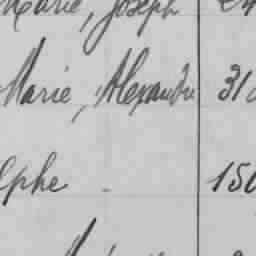 Marie, Joseph 24
Marie, Alexandre 31
lphe 150